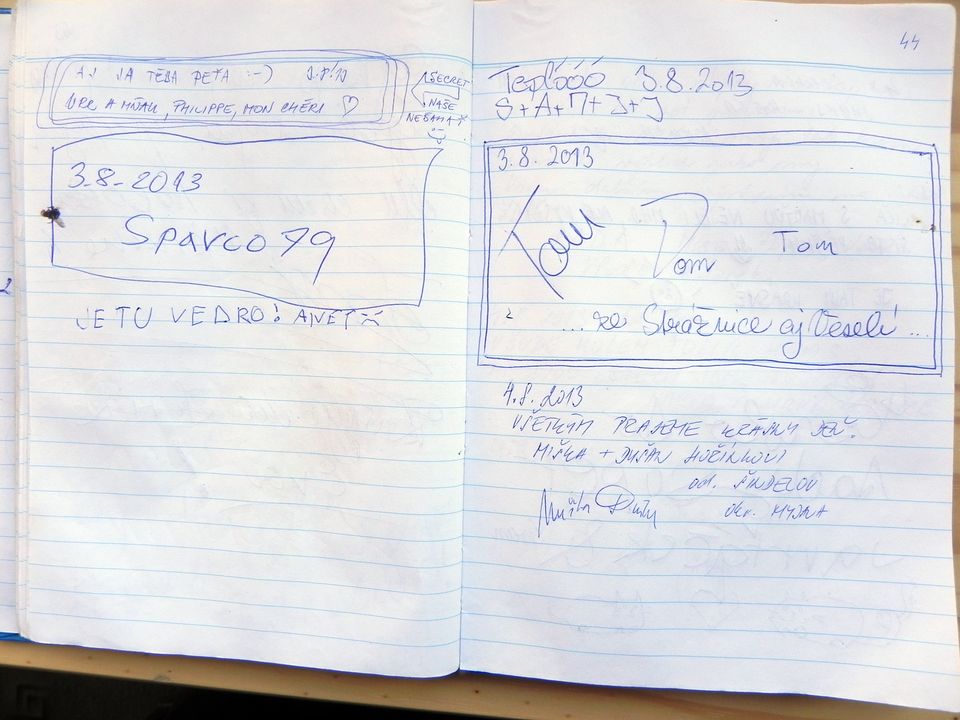 AJ JA TEBA PEŤA :-)
A MŇAU, PHILIPPE, MON CHÉRI ♡
SECRET
NAŠE
3.8.2013
Sparco 79
JE TU VEDRO! ANET
44
Teplóóó 3.8.2013
S+A+M+J+J
3.8.2013
Tom Tom Tom
...ze Strážnice aj Veselí...
4.8.2013
VŠETKÝM PRAJEME KRÁSNY DEŇ.
MIŠKA + DUŠAN
od. ŠINDELOV
okr. MYJAVA